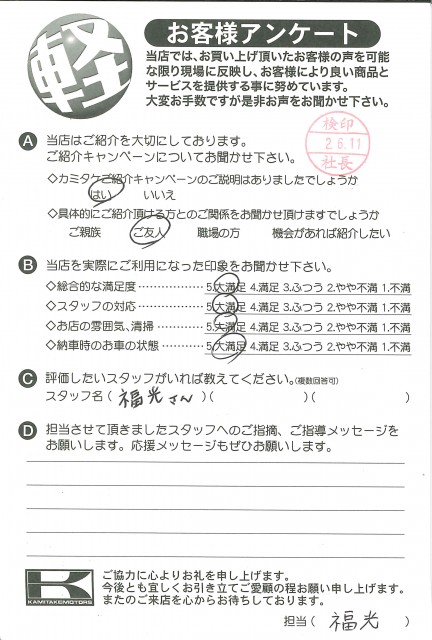 軽
お客様アンケート
当店では、お買い上げ頂いたお客様の声を可能
な限り現場に反映し、お客様により良い商品と
サービスを提供する事に努めています。
大変お手数ですが是非お声をお聞かせ下さい。
検印
2.6.11
社長
A 当店はご紹介を大切にしております。
ご紹介キャンペーンについてお聞かせ下さい。
◇カミタケご紹介キャンペーンのご説明はありましたでしょうか
はい いいえ
◇具体的にご紹介頂ける方とのご関係をお聞かせ頂けますでしょうか
ご親族 ご友人 職場の方 機会があれば紹介したい
B 当店を実際にご利用になった印象をお聞かせ下さい。
◇総合的な満足度……………5.大満足 4.満足 3.ふつう 2.やや不満 1.不満
◇スタッフの対応……………5.大満足 4.満足 3.ふつう 2.やや不満 1.不満
◇お店の雰囲気、清掃………5.大満足 4.満足 3.ふつう 2.やや不満 1.不満
◇納車時のお車の状態………5.大満足 4.満足 3.ふつう 2.やや不満 1.不満
C 評価したいスタッフがいれば教えてください。(複数回答可)
スタッフ名(福光さん)( )( )
D 担当させて頂きましたスタッフへのご指摘、ご指導メッセージを
お願いします。応援メッセージもぜひお願いします。
K
KAMITAKEMOTORS
ご協力に心よりお礼を申し上げます。
今後とも宜しくお引き立てご愛顧の程お願い申し上げます。
またのご来店を心からお待ちしております。
担当(福光)